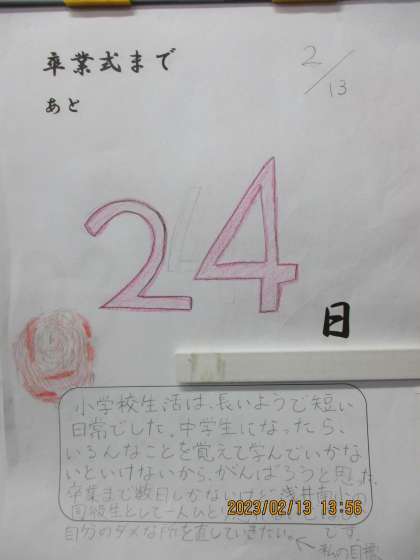 卒業式まで
2/13
あと
24
日
小学校生活は、長いようで短い
日常でした。中学生になったら、
いろんなことを覚えて学んでいかな
いといけないから、がんばろうと思った。
卒業まで数日しかないけど、浅井南小の
同級生として一人ひとり
2023/02/13 13:56
自分のダメな所を直していきたい。
です。
私の目標